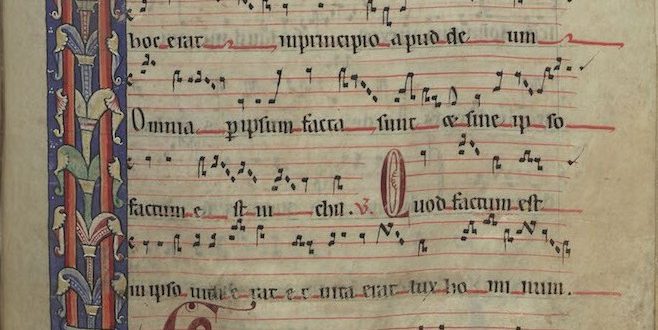 hoc erat in principio apud de um
Omnia p ipsum facta sunt & sine ip so
factum e st ni chil. V. Quod factum est
in ipso uita e rat et uita erat lux ho mi num.